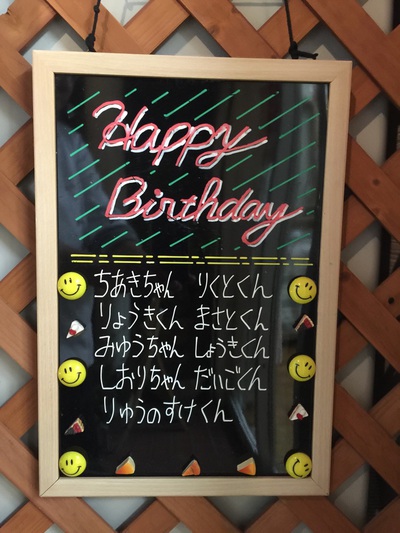 Happy
Birthday
ちあきちゃん りくとくん
りょうきくん まさとくん
みゆうちゃん しょうきくん
しおりちゃん だいごくん
りゅうのすけくん